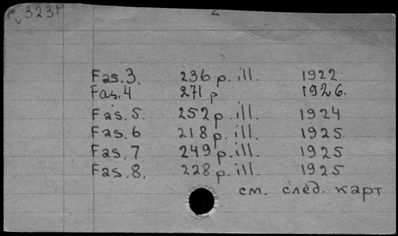 2
Fas.3. 236 p. ill. 1922
Fas.4 271 p 1926.
Fas.5. 252 p. ill. 1924
Fas.6 218 p. ill. 1925
Fas.7 249 p. ill. 1925
Fas.8. 228 p. ill. 1925
см. след. карт